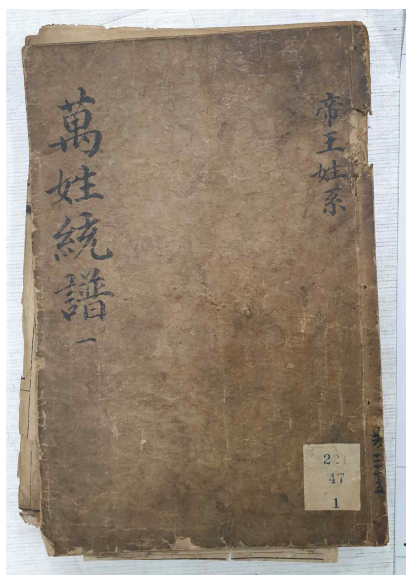 帝王姓系
萬姓統譜
一
47
1